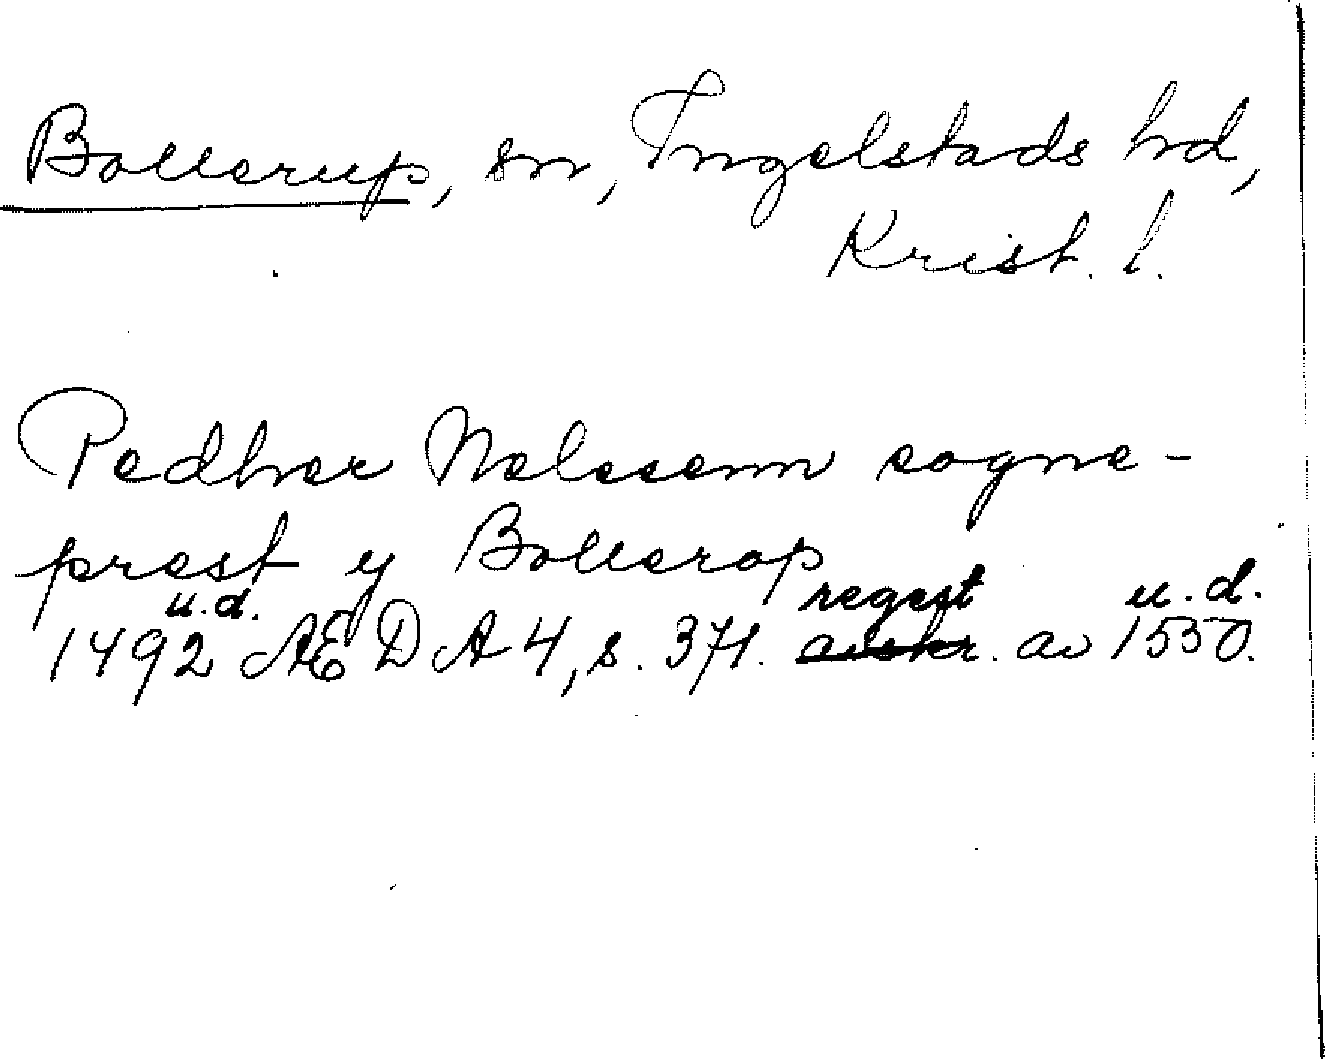 Bollerup, sn, Ingelstads hd,
Krist. l.
Pedher Nelssenn sogne-
prest y Bollerop
u.d. regest u.d.
1492 ÆDA 4, s. 371. avskr. av 1550.